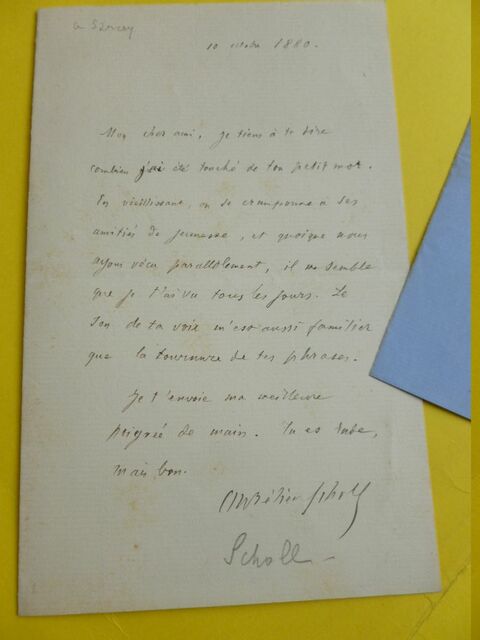 à Sarcey
10 octobre 1880.
Mon cher ami, je tiens à te dire
combien j'ai été touché de ton petit mot.
En vieillissant, on se cramponne à ses
amitiés de jeunesse, et quoique nous
ayons vécu parallèlement, il me semble
que je t'ai vu tous les jours. Le
son de ta voix m'est aussi familier
que la tournure de tes phrases.
Je t'envoie ma meilleure
poignée de main. Tu es
mais bon.
Aurélien Scholl
Scholl